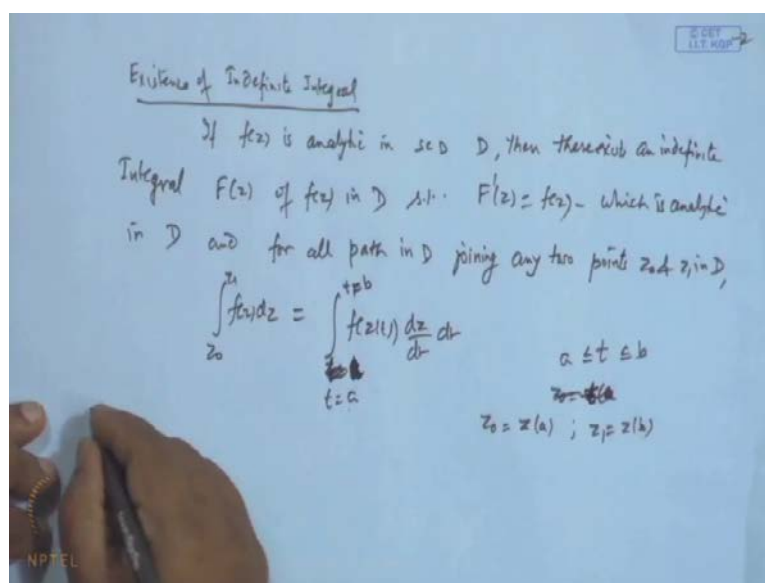 © CET
I.I.T. KGP
-2
Existence of Indefinite Integral
If f(z) is analytic in SCD D, then there exist an indefinite
Integral F(z) of f(z) in D s.t. F'(z) = f(z) - which is analytic
in D and for all path in D joining any two points z₀ & z₁ in D,
∫_{z₀}^{z₁} f(z)dz = ∫_{t=a}^{t=b} f(z(t)) dz/dt dt
a ≤ t ≤ b
z₀ = z(a) ; z₁ = z(b)
NPTEL